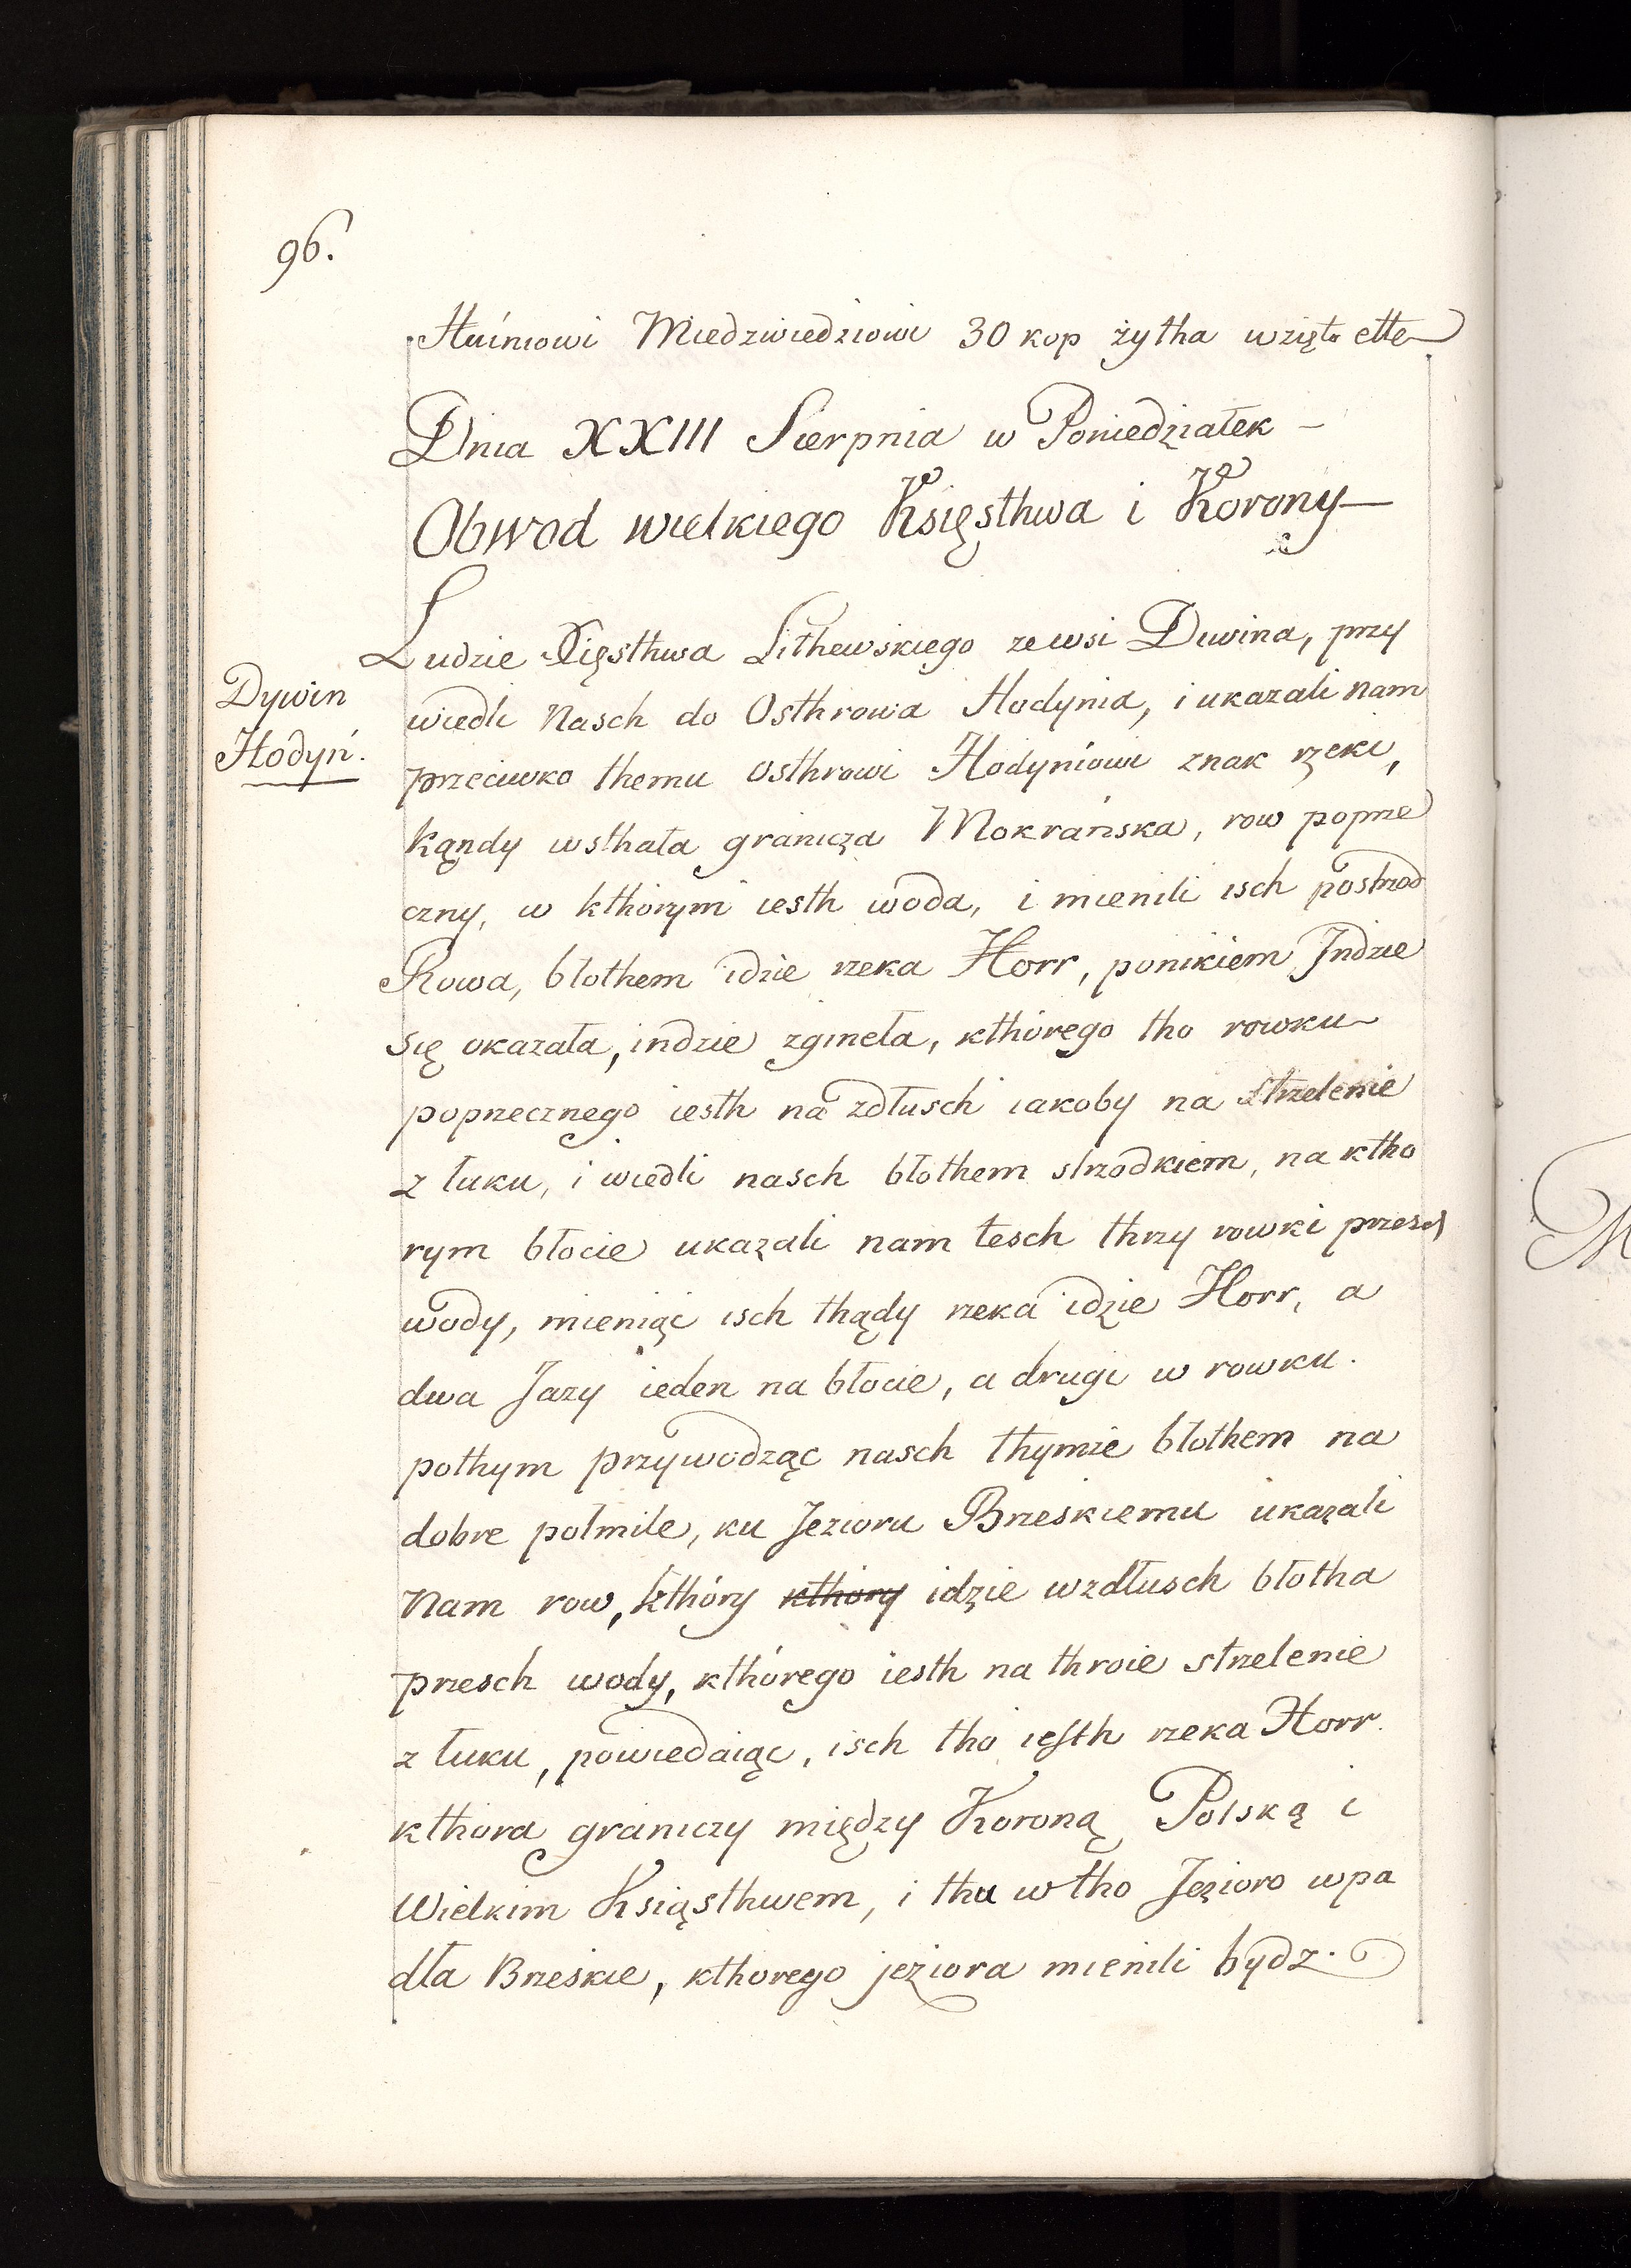 96.
Huíniowi Miedzwiedziowi 30 kop żytha wzięto ette
Dnia XXIII Sierpnia w Poniedziałek –
Obwod wielkiego Księsthwa i Korony –
Ludzie Xięsthwa Lithewskiego ze wsi Dwina, przy
wiedli Nasch do Osthrowa Hodynia, i ukazali nam
Dywin
Hodyń.
przeciwko themu osthrowi Hodyniowi znak rzeki,
kąndy wsthała granicza Mokrańska, row poprze
czny, w kthorym iesth woda, i mienili isch postrzod
Rowa, błothem idzie rzeka Horr, ponikiem Jndzie
się okazała, indzie zgineła, kthórego tho rowku
poprzecznego iesth na zdłusch iakoby na strzelenie
z łuku, i wiedli nasch błothem strzodkiem, na ktho
rym błocie ukazali nam tesch thrzy rowki przesch
wody, mieniąc isch thądy rzeka idzie Horr, a
dwa Jazy ieden na błocie, a drugi w rowku.
pothym przywodząc nasch thymże błothem na
dobre połmile, ku Jezioru Brzeskiemu ukazali
Nam row, kthóry kthory idzie wzdłusch błotha
przesch wody, kthórego iesth na throie strzelenie
z łuku, powiedaiąc, isch tho iesth rzeka Horr.
kthora graniczy między Koroną Polską i
Wielkim Książsthwem, i thu w tho Jezioro wpa
dła Brzeskie, kthorego jeziora mienili bydz.